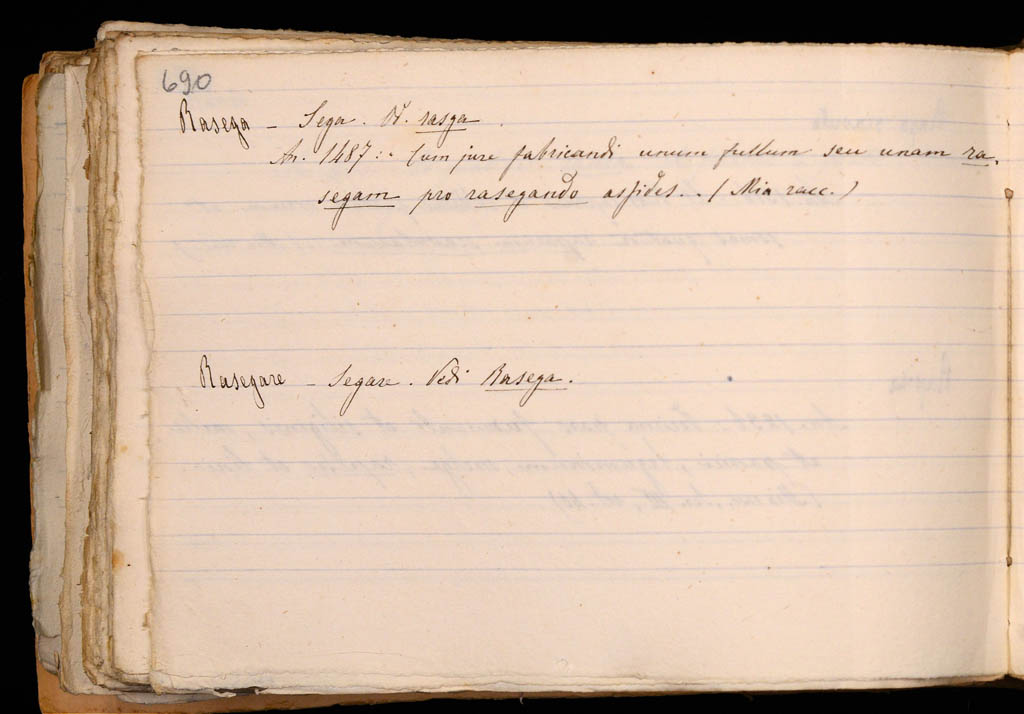 690
Rasega - Sega. Vd. rasga.
An. 1487: - Cum jure fabricandi unum fullum seu unam ra-
segam pro rasegando assides.. (Mia racc.)
Rasegare - Segare. Vedi Rasega.